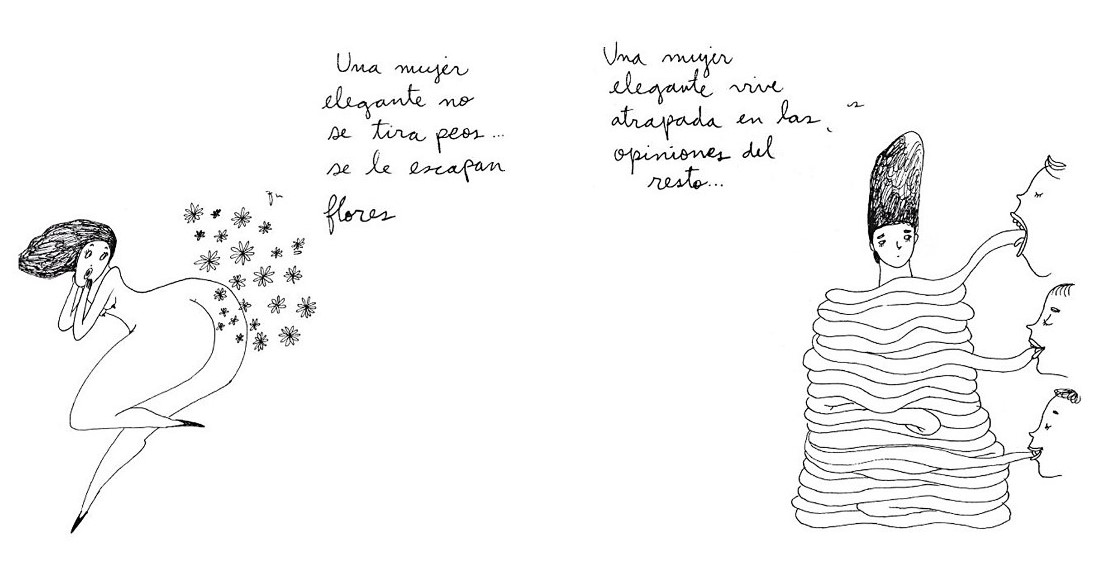 Una mujer
elegante no
se tira peos...
se le escapan
flores
Una mujer
elegante vive
atrapada en las
opiniones del
resto...